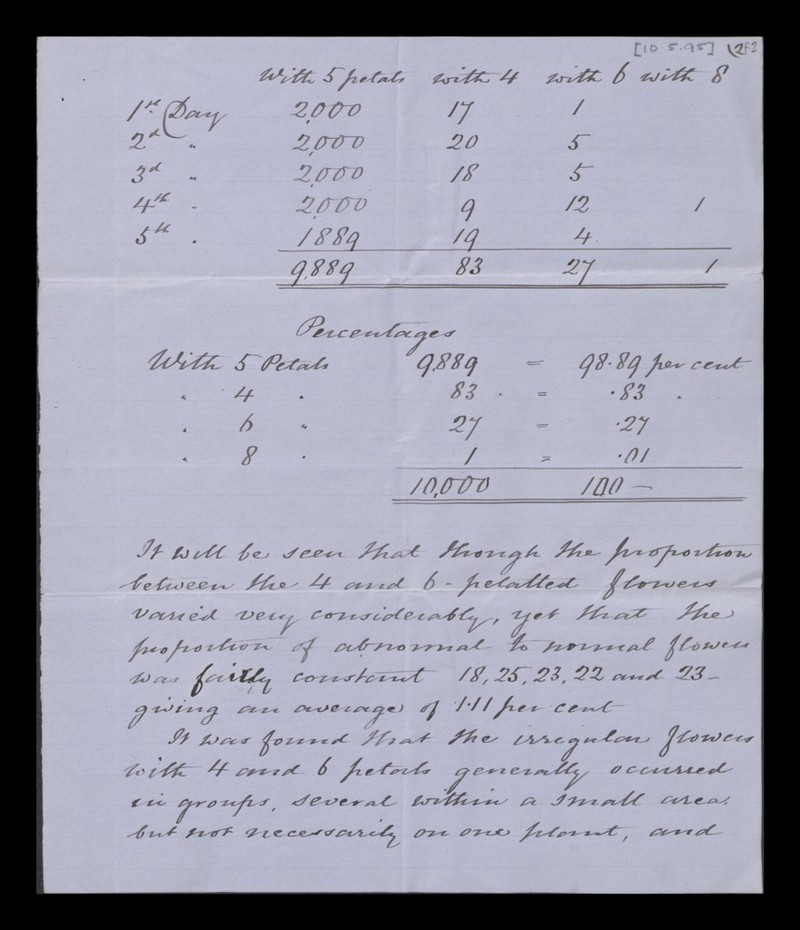 [10 5.95] (2f2
With 5 petals with 4 with 6 with 8
1st Day 2,000 17 1
2d " 2,000 20 5
3d " 2,000 18 5
4th - 2,000 9 12 1
5th . 1889 19 4
9,889 83 27 1
Percentages
With 5 Petals 9,889 = 98.89 per cent
" 4 . 83 . = .83 .
. 6 " 27 = .27
" 8 . 1 = .01
10,000 100 —
It will be seen that though the proportion
between the 4 and 6-petalled flowers
varied very considerably, yet that the
proportion of abnormal to normal flowers
was fairly constant 18, 25, 23, 22 and 23 -
giving an average of 1.11 per cent
It was found that the irregular flowers
with 4 and 6 petals generally occurred
in groups, several within a small area.
but not necessarily on one plant, and